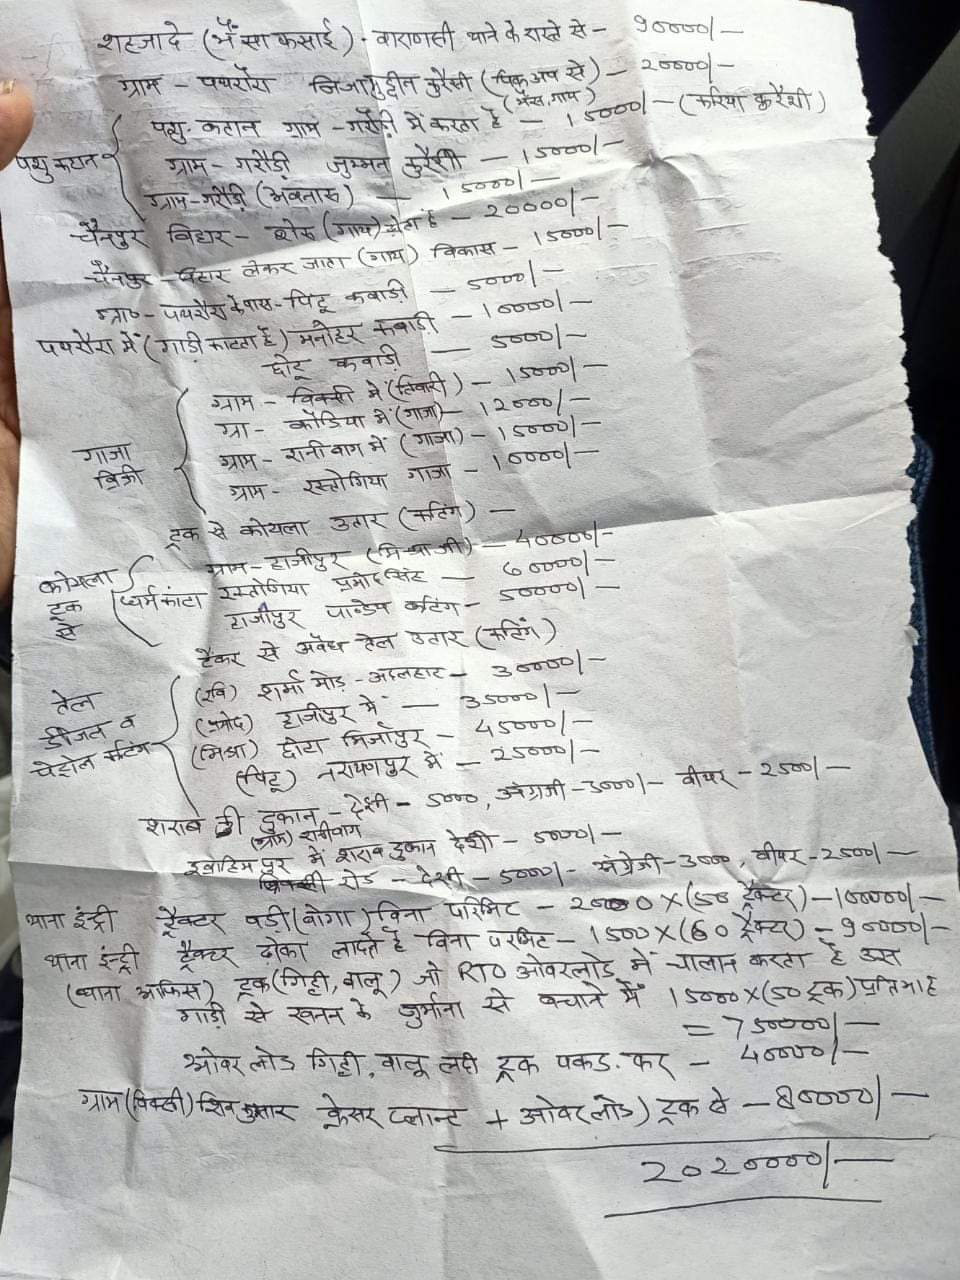 शहजादे (भैंसा कसाई) - वाराणसी थाने के रास्ते से - 90000/-
ग्राम - पथरौरा निजामुद्दीन कुरैसी (पिकअप से) - 20000/-
(भैंस, गाय)
पशु कटान ग्राम - गरौड़ी में करता है - 15000/- (करिया कुरैशी)
पशु कटान
ग्राम - गरौड़ी जुम्मन कुरैशी - 15000/-
ग्राम - गरौड़ी - 15000/-
चैनपुर बिहार - शेरू (गाय) है - 20000/-
चैनपुर - बिहार लेकर जाता (गाय) विकास - 15000/-
ग्रा० - पथरौरा के पास - पिंटू कबाड़ी - 5000/-
पथरौरा में (गाड़ी काटता है) मनोहर कबाड़ी - 10000/-
छोटू कबाड़ी - 5000/-
ग्राम - विक्सी में (तिवारी) - 15000/-
ग्रा - कोंडिया में (गाजा) - 12000/-
गाजा बिक्री
ग्राम - रानीबाग में (गाजा) - 15000/-
ग्राम - रस्तोगिया गाजा - 10000/-
ट्रक से कोयला उतार (कटिंग) -
कोयला ट्रक से
ग्राम - हाजीपुर - 40000/-
धर्मकांटा रस्तोगिया प्रमोद सिंह - 60000/-
हाजीपुर पाण्डेय कटिंग - 50000/-
टैंकर से अवैध तेल उतार (कटिंग)
तेल डीजल व पेट्रोल कटिंग
(रवि) शर्मा मोड़ - अदलहाट - 30000/-
(प्रमोद) हाजीपुर में - 35000/-
(मिश्रा) छोटा मिर्जापुर - 45000/-
(पिंटू) नरायणपुर में - 25000/-
शराब की दुकान - देशी - 5000, अंग्रेजी - 3000/- बीयर - 2500/-
(ग्राम) रानीबाग
इब्राहिमपुर में शराब दुकान देशी - 5000/-
विक्सी रोड - देशी - 5000/- अंग्रेजी - 3000, बीयर - 2500/-
थाना इंद्री ट्रैक्टर पड़ी (बोगा) बिना परमिट - 2000 X (50 ट्रैक्टर) - 100000/-
थाना इन्द्री ट्रैक्टर ढ़ोका लादते हैं बिना परमिट - 1500 X (60 ट्रैक्टर) - 90000/-
(थाना आफिस) ट्रक (गिट्टी, बालू) जो RTO ओवरलोड में चालान करता है उस
गाड़ी से खनन के जुर्माना से बचाने में 15000 X (50 ट्रक) प्रतिमाह
= 750000/-
ओवर लोड गिट्टी, बालू लदी ट्रक पकड़ कर - 40000/-
ग्राम (विक्सी) क्रेसर प्लान्ट + ओवर लोड) ट्रक से - 80000/-
2020000/-